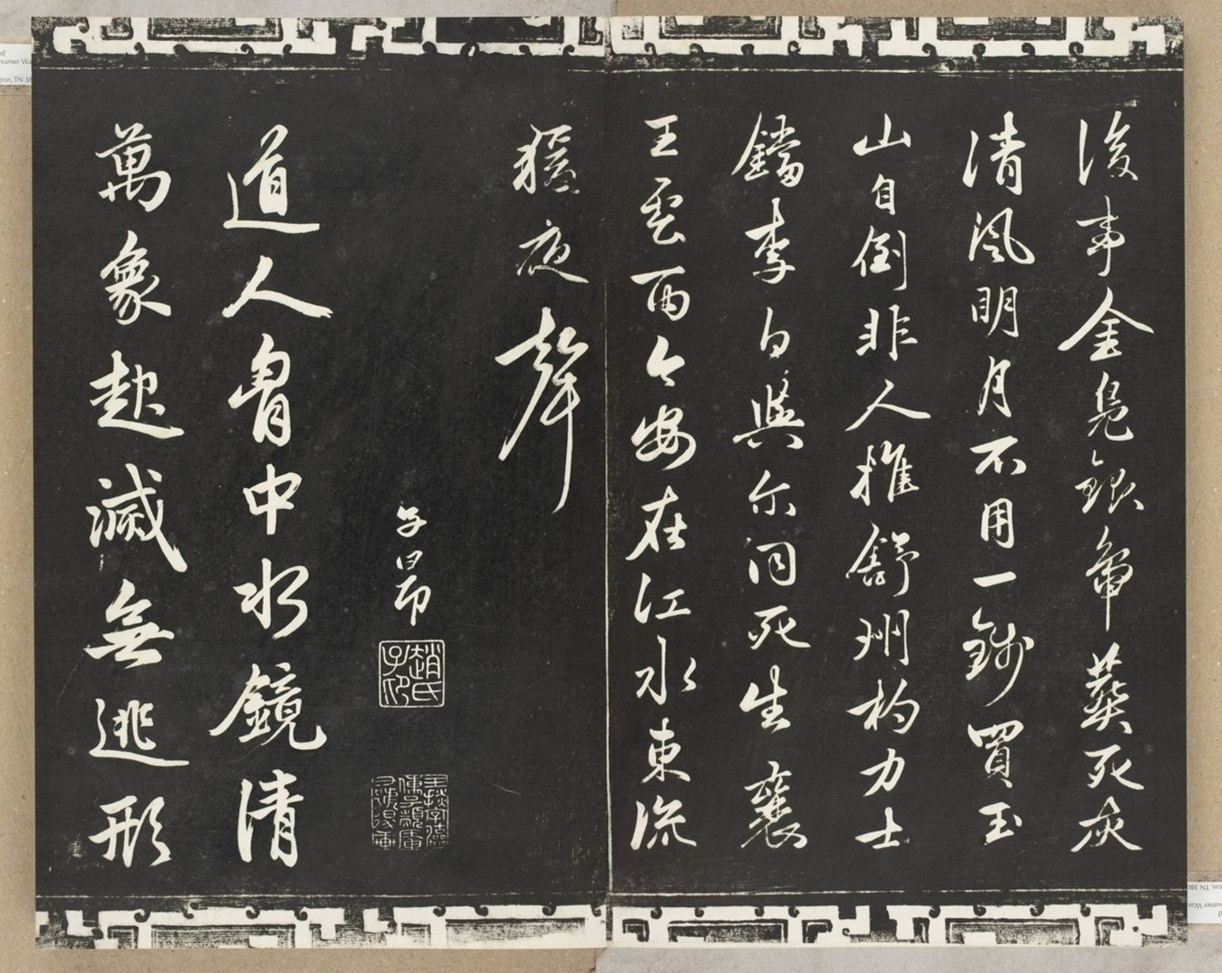 後事金鳧銀鴨葬死灰
清風明月不用一錢買玉
山自倒非人推舒州杓力士
鐺李白與尔同死生襄
王雲雨今安在江水東流
猨夜聲
子昂
趙氏子卬
道人胷中水鏡清
萬象起滅無逃形